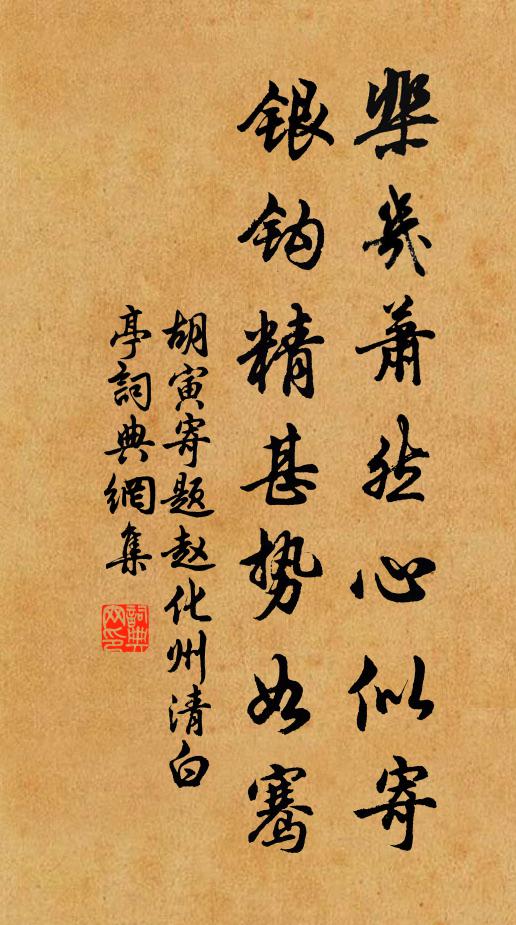 棐几萧然心似寄
银钩精甚势如骞
胡寅寄题赵化州清白
亭詞典網集
詞典网印